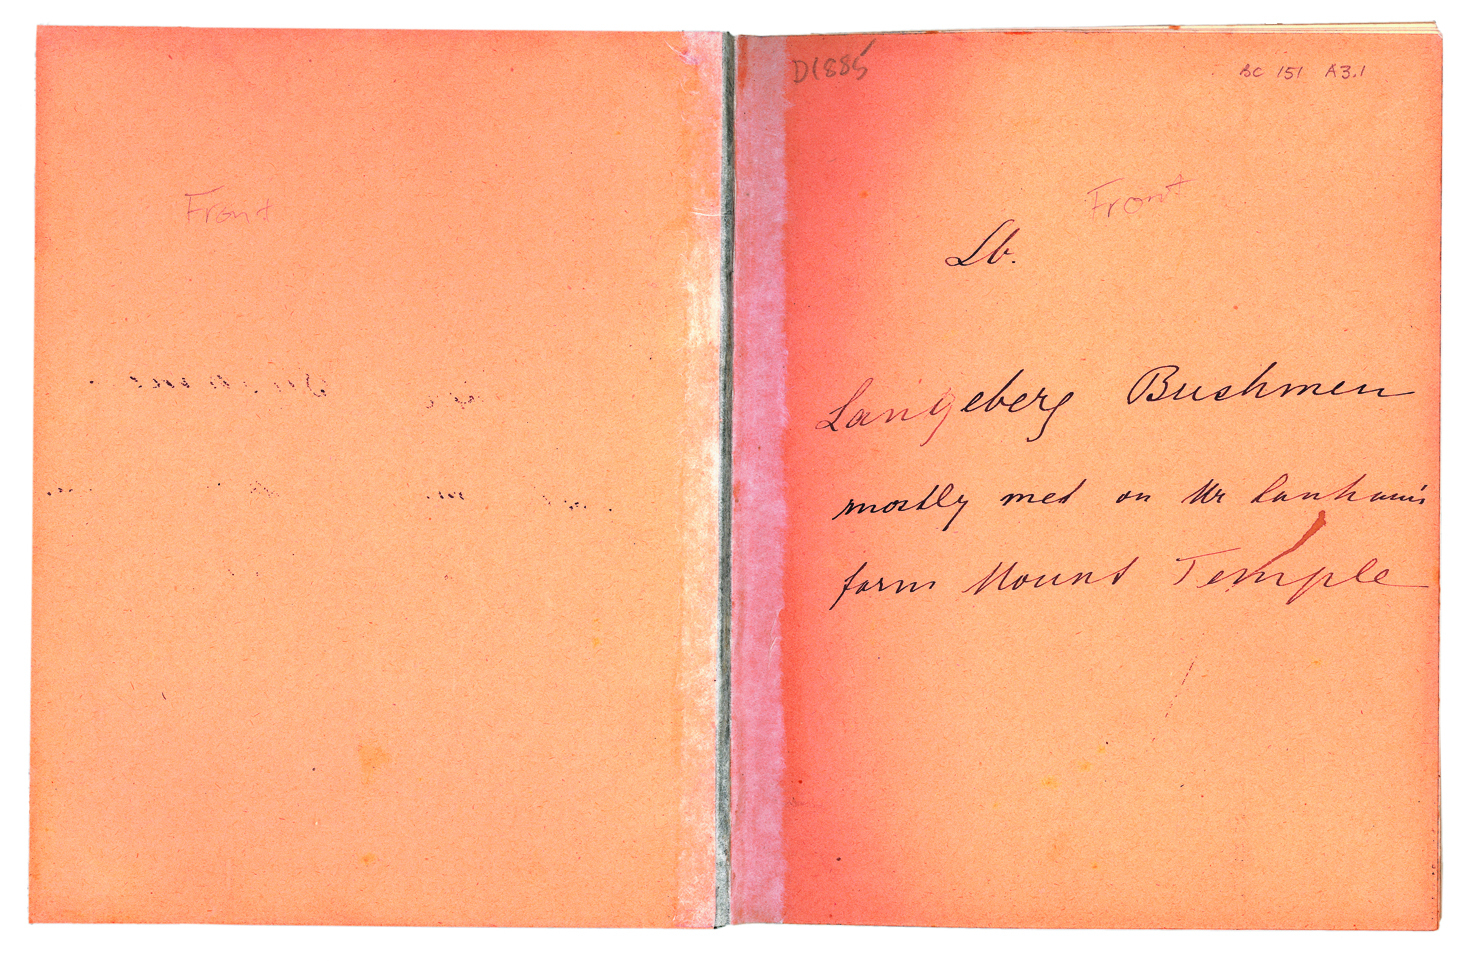 Front
D1885
BC 151 A3.1
Front
Lb.
Langeberg Bushmen
mostly met on Mr Lanham's
farm Mount Temple